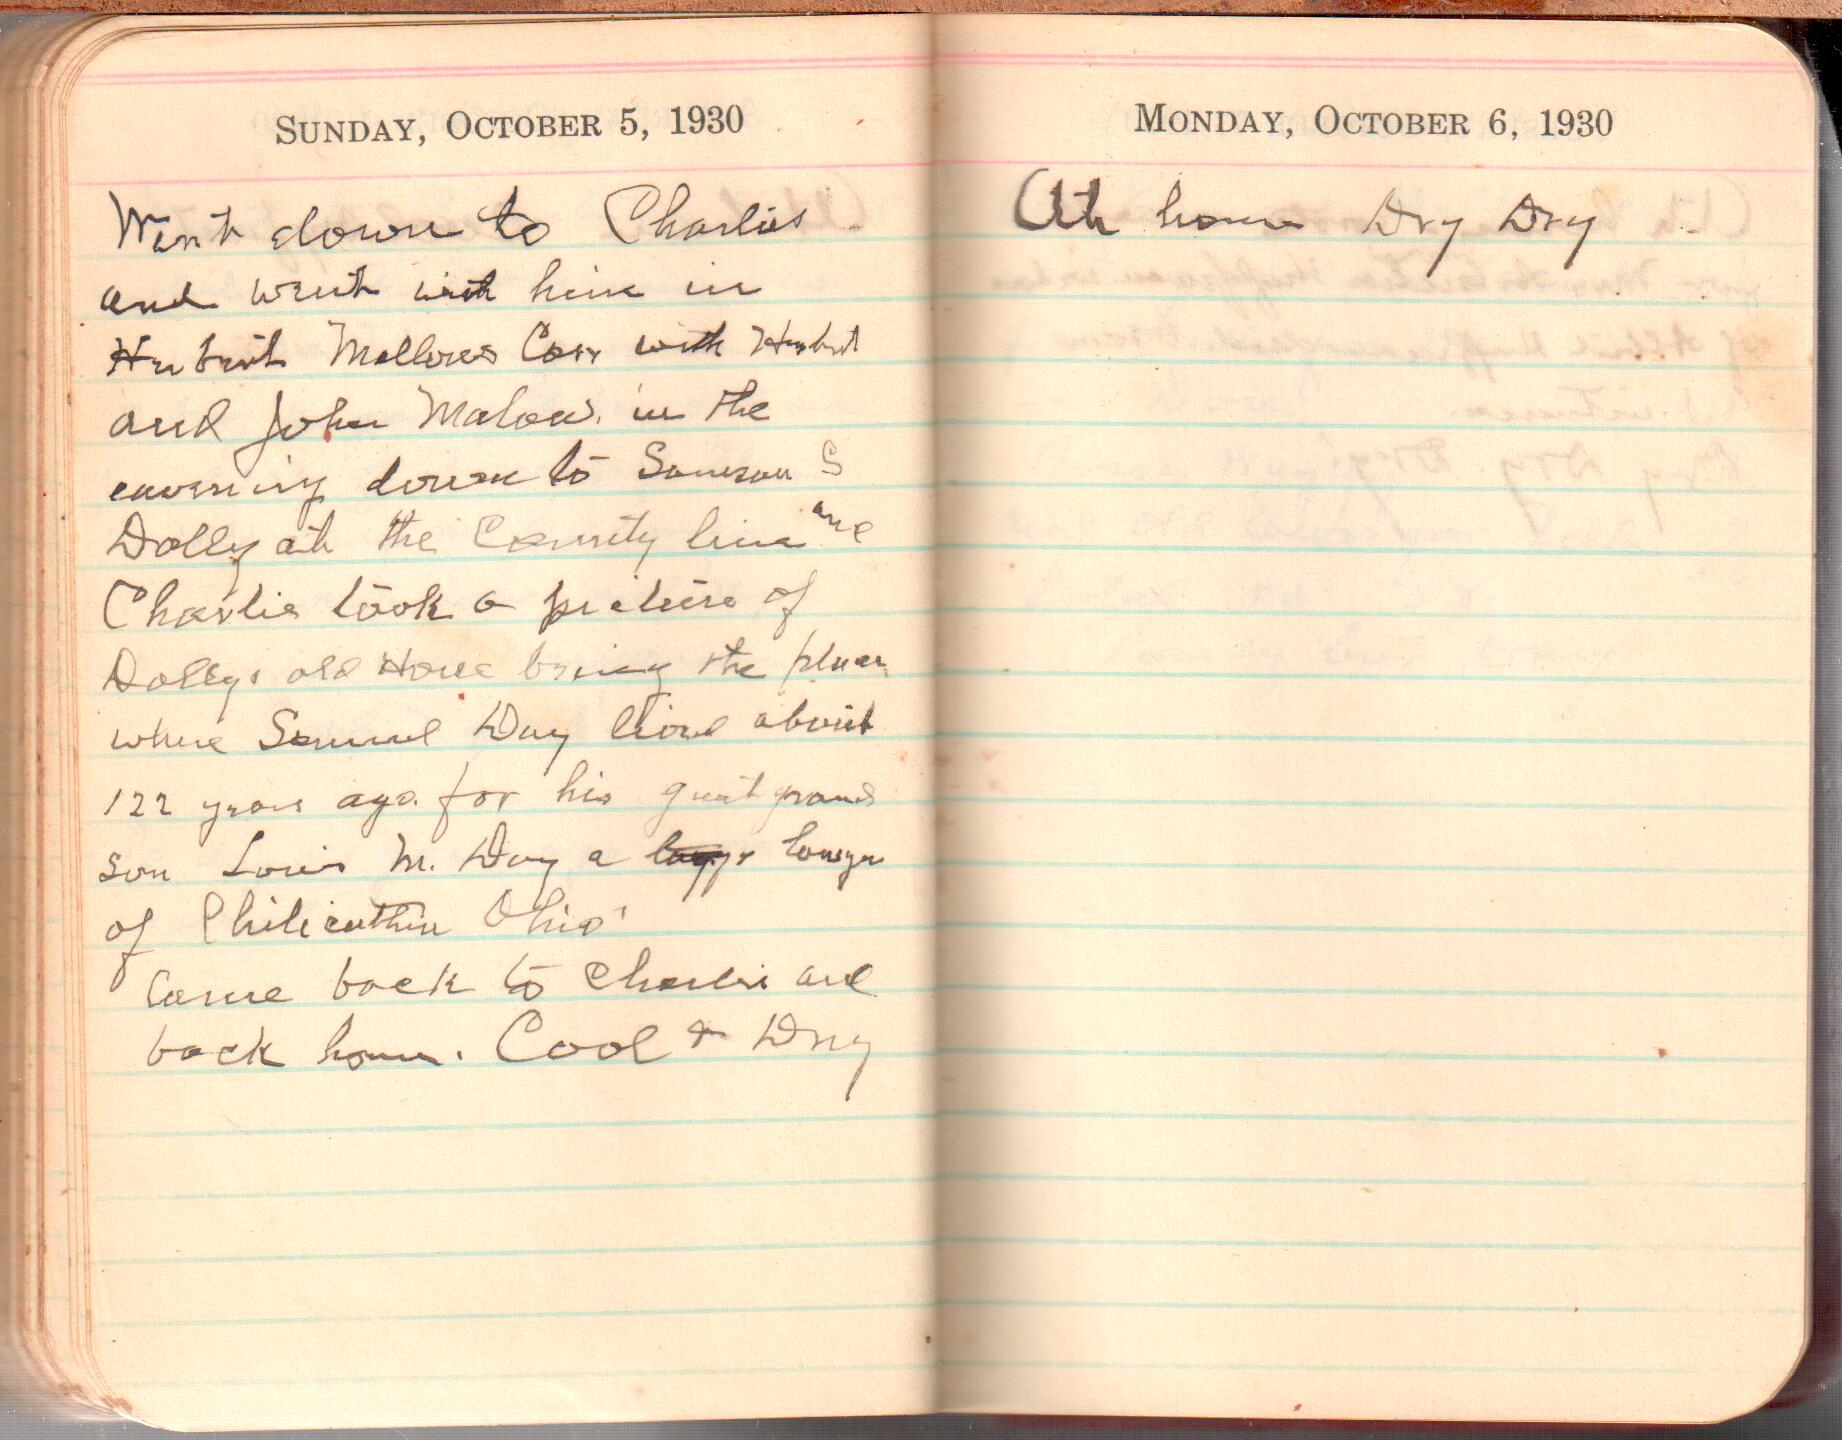 SUNDAY, OCTOBER 5, 1930
Went down to Charlies
and went with him in
Herbert Mallows Car with Herbert
and John Malow. in the
evening down to Samson S
Dolly at the County line and
Charlie took a picture of
Dollys old House being the place
where Samuel Day lived about
122 years ago. for his great grand
son Louis M. Day a lawyer
of Chilicothie Ohio
Came back to Charlie and
back home. Cool & Dry
MONDAY, OCTOBER 6, 1930
At home Dry Dry